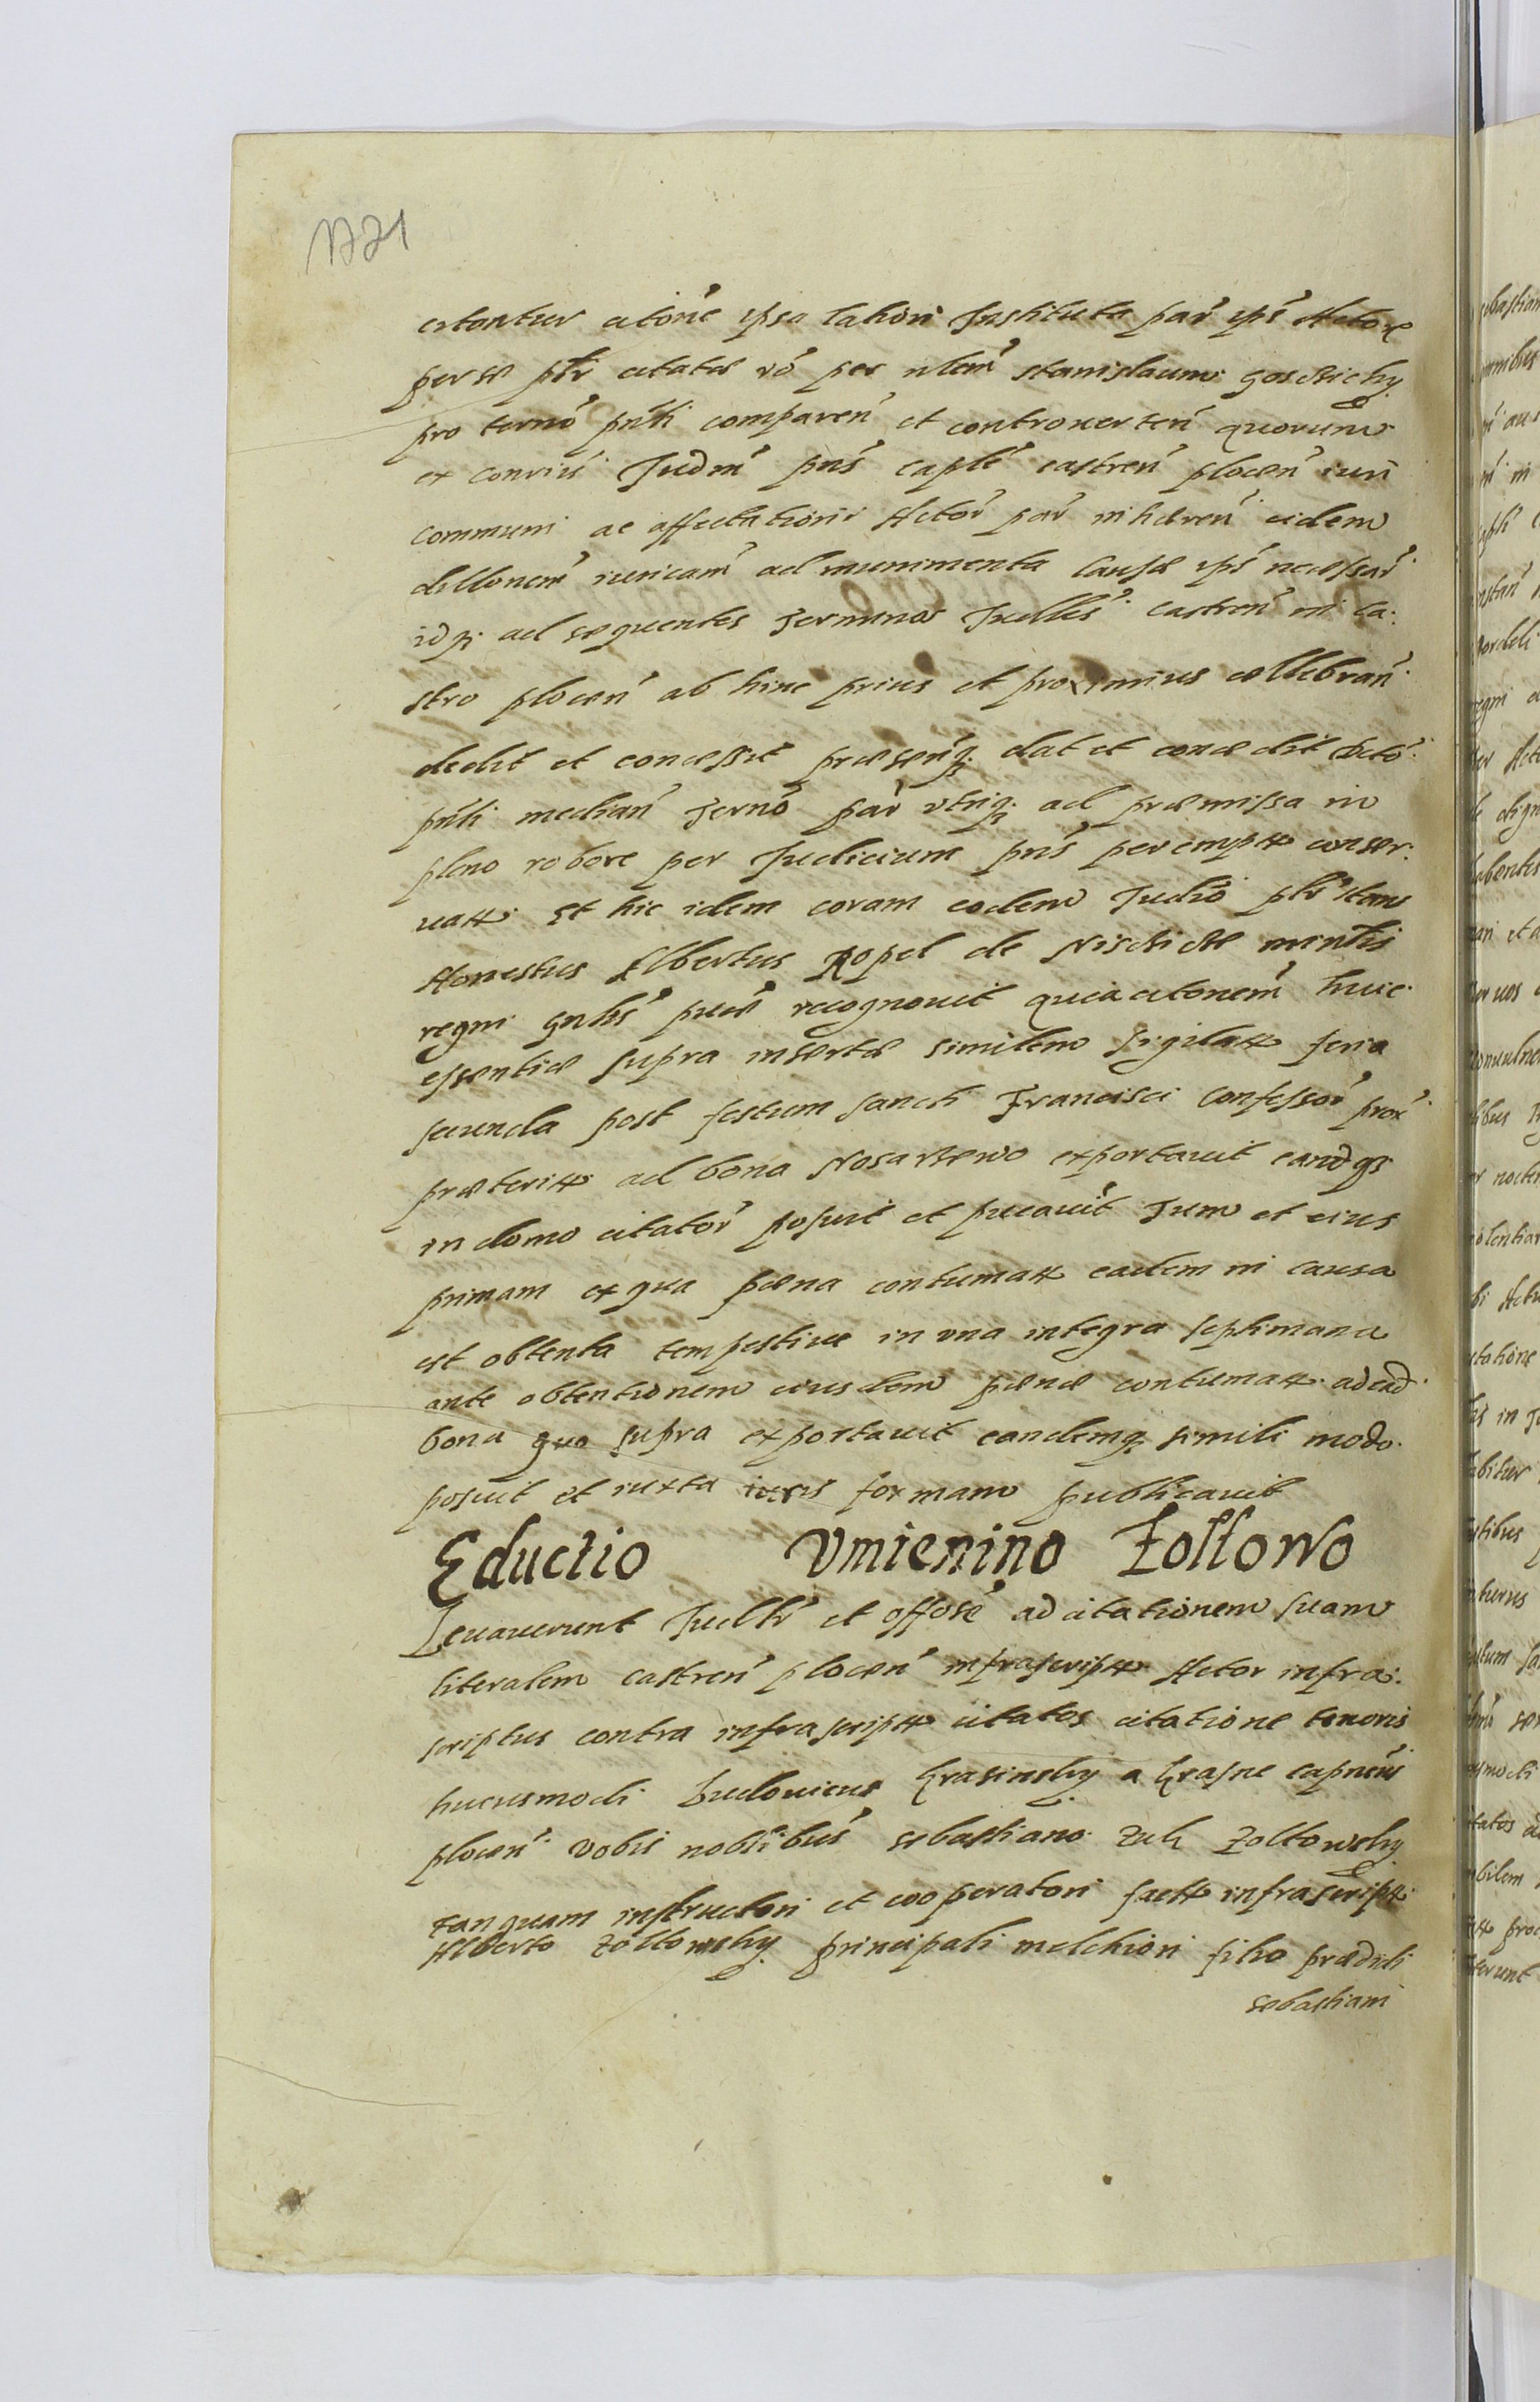 1721
citantur citone ipsa latiori Instituta par ips Actore
per se psr citatæ vo per nlem Stanislaum
pro termo pnti comparen et controverten quorum
ex convin Judm pns caple castren plocen iuri
communi ac affectationi Actor par inhæren eidem
dillonem iuricam ad munimenta causæ ips necessar
idq; ad sequentes Terminos Judlles castren in ca:
stro plocen ab hinc prius et proximius cellebran
dedit et concessit præsenq; dat et concedit
pnti median Termo par utriq; ad præmissa in
pleno robore per Judicium pns perempt conser:
uatt Et hic idem coram eodem Judio psr stans
Honestus Albertus Ropel de mintlis
regni gnlis pub recognovit quia citonem huic
essentiæ supra insertæ similem sigilatt feria
secunda post festum sancti Francisci confessor prox
præteritt ad bona exportavit eandq;
in domo citator posuit et pucavit Tum et eius
primam ex qua pæna contumatt eadem in causa
est obtenta tempestive in una integra septimana
ante obtentionem eiusdem pænæ contumatt ad ead
bona quo supra exportavit eandemq; simili modo
posuit et iuxta iuris formam publicavit
Eductio Vmienino Zoltowo
Levaverunt Judllr et offose ad citationem suam
literalem castren plocen infrascriptt Actor infra:
scriptus contra infrascriptt citatos citatione tenoris
huiusmodi Ludovicus Krasinsky a Krasne capneus
plocen vobis noblibus Sebastiano Zuk Zoltowsky
tanquam instructori et cooperatori factt infrascriptt
Alberto Zoltowsky principali Melchiori filio prædicti
Sebastiani